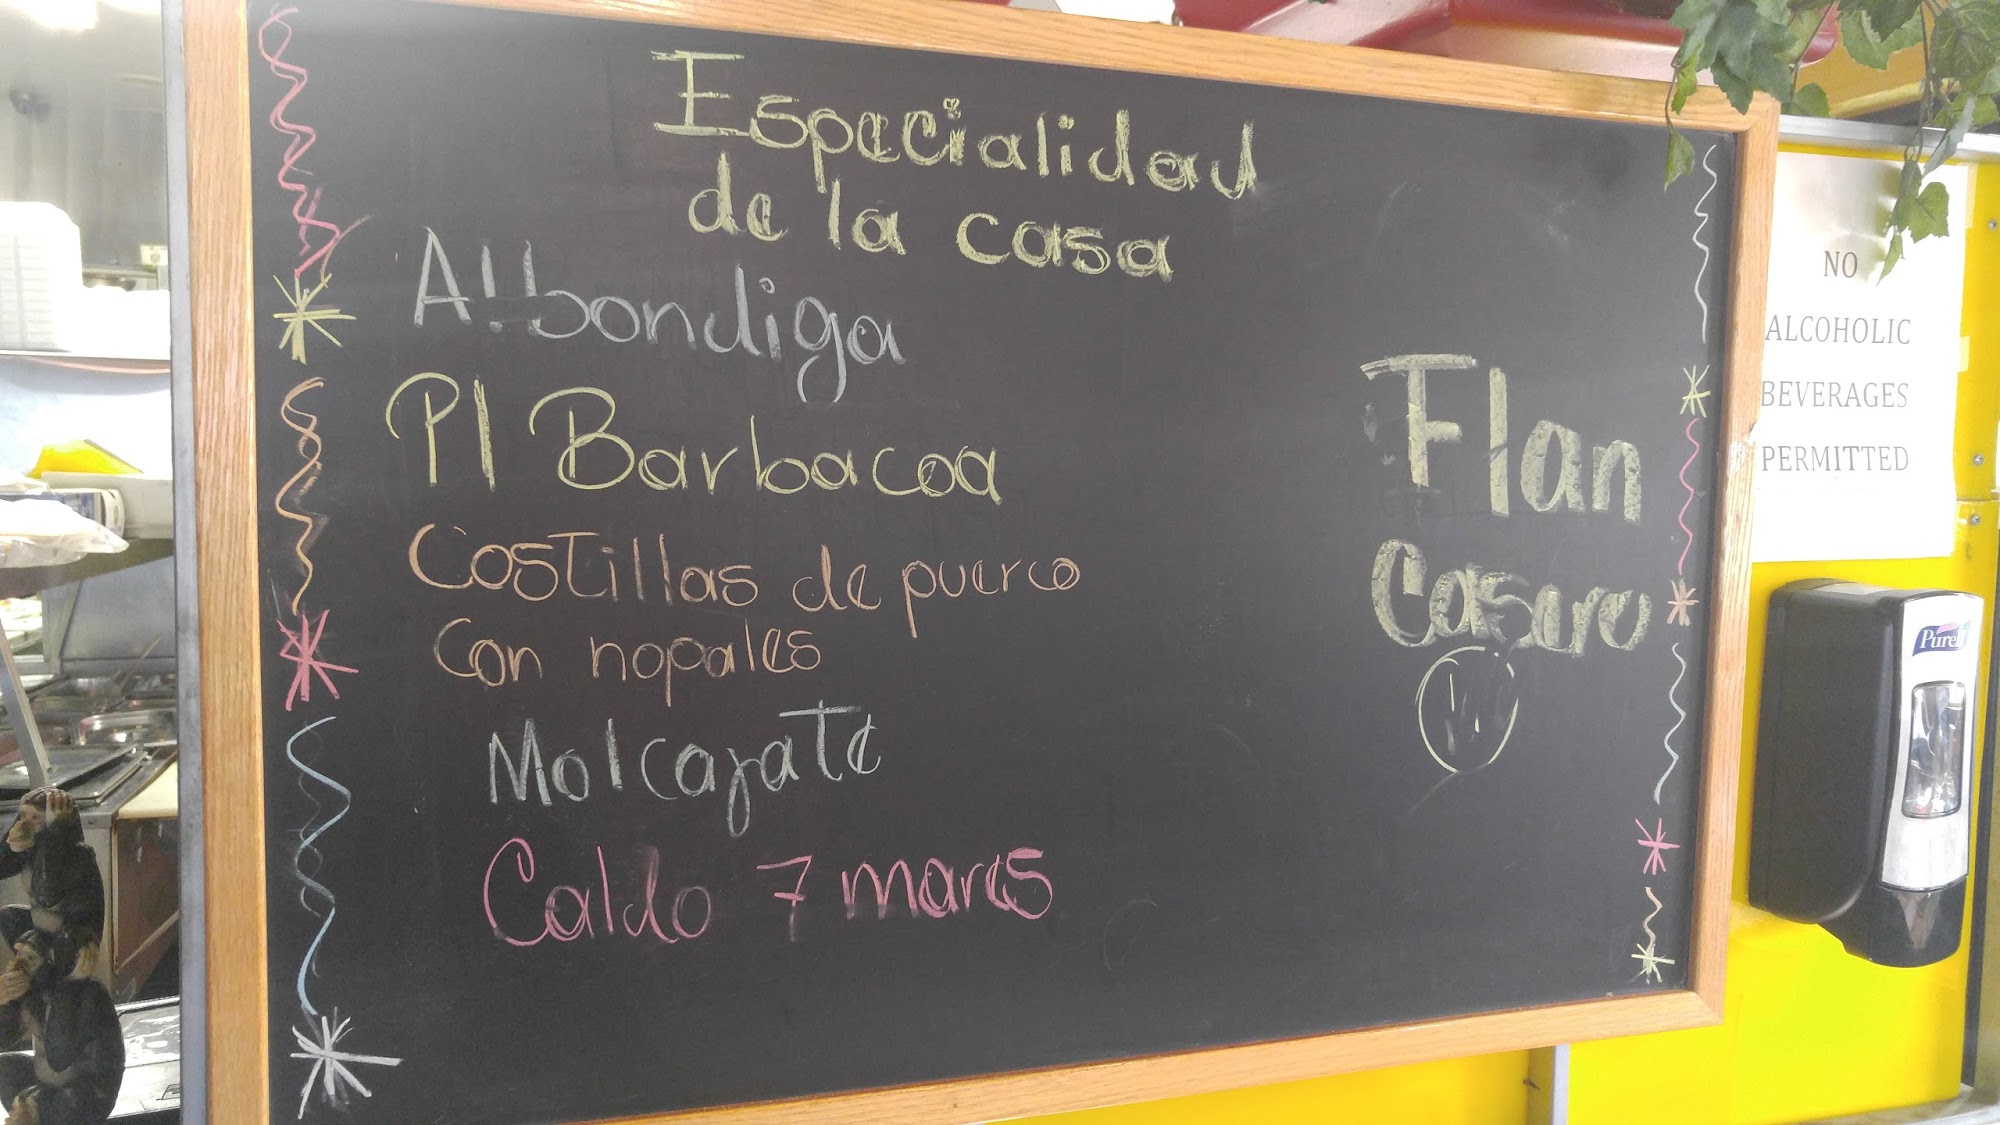 Especialidad
de la casa
Albondiga
Pl Barbacoa
Costillas de puerco
con nopales
Molcajate
Caldo 7 mares
Flan
Casero
NO
ALCOHOLIC
BEVERAGES
PERMITTED
Purell